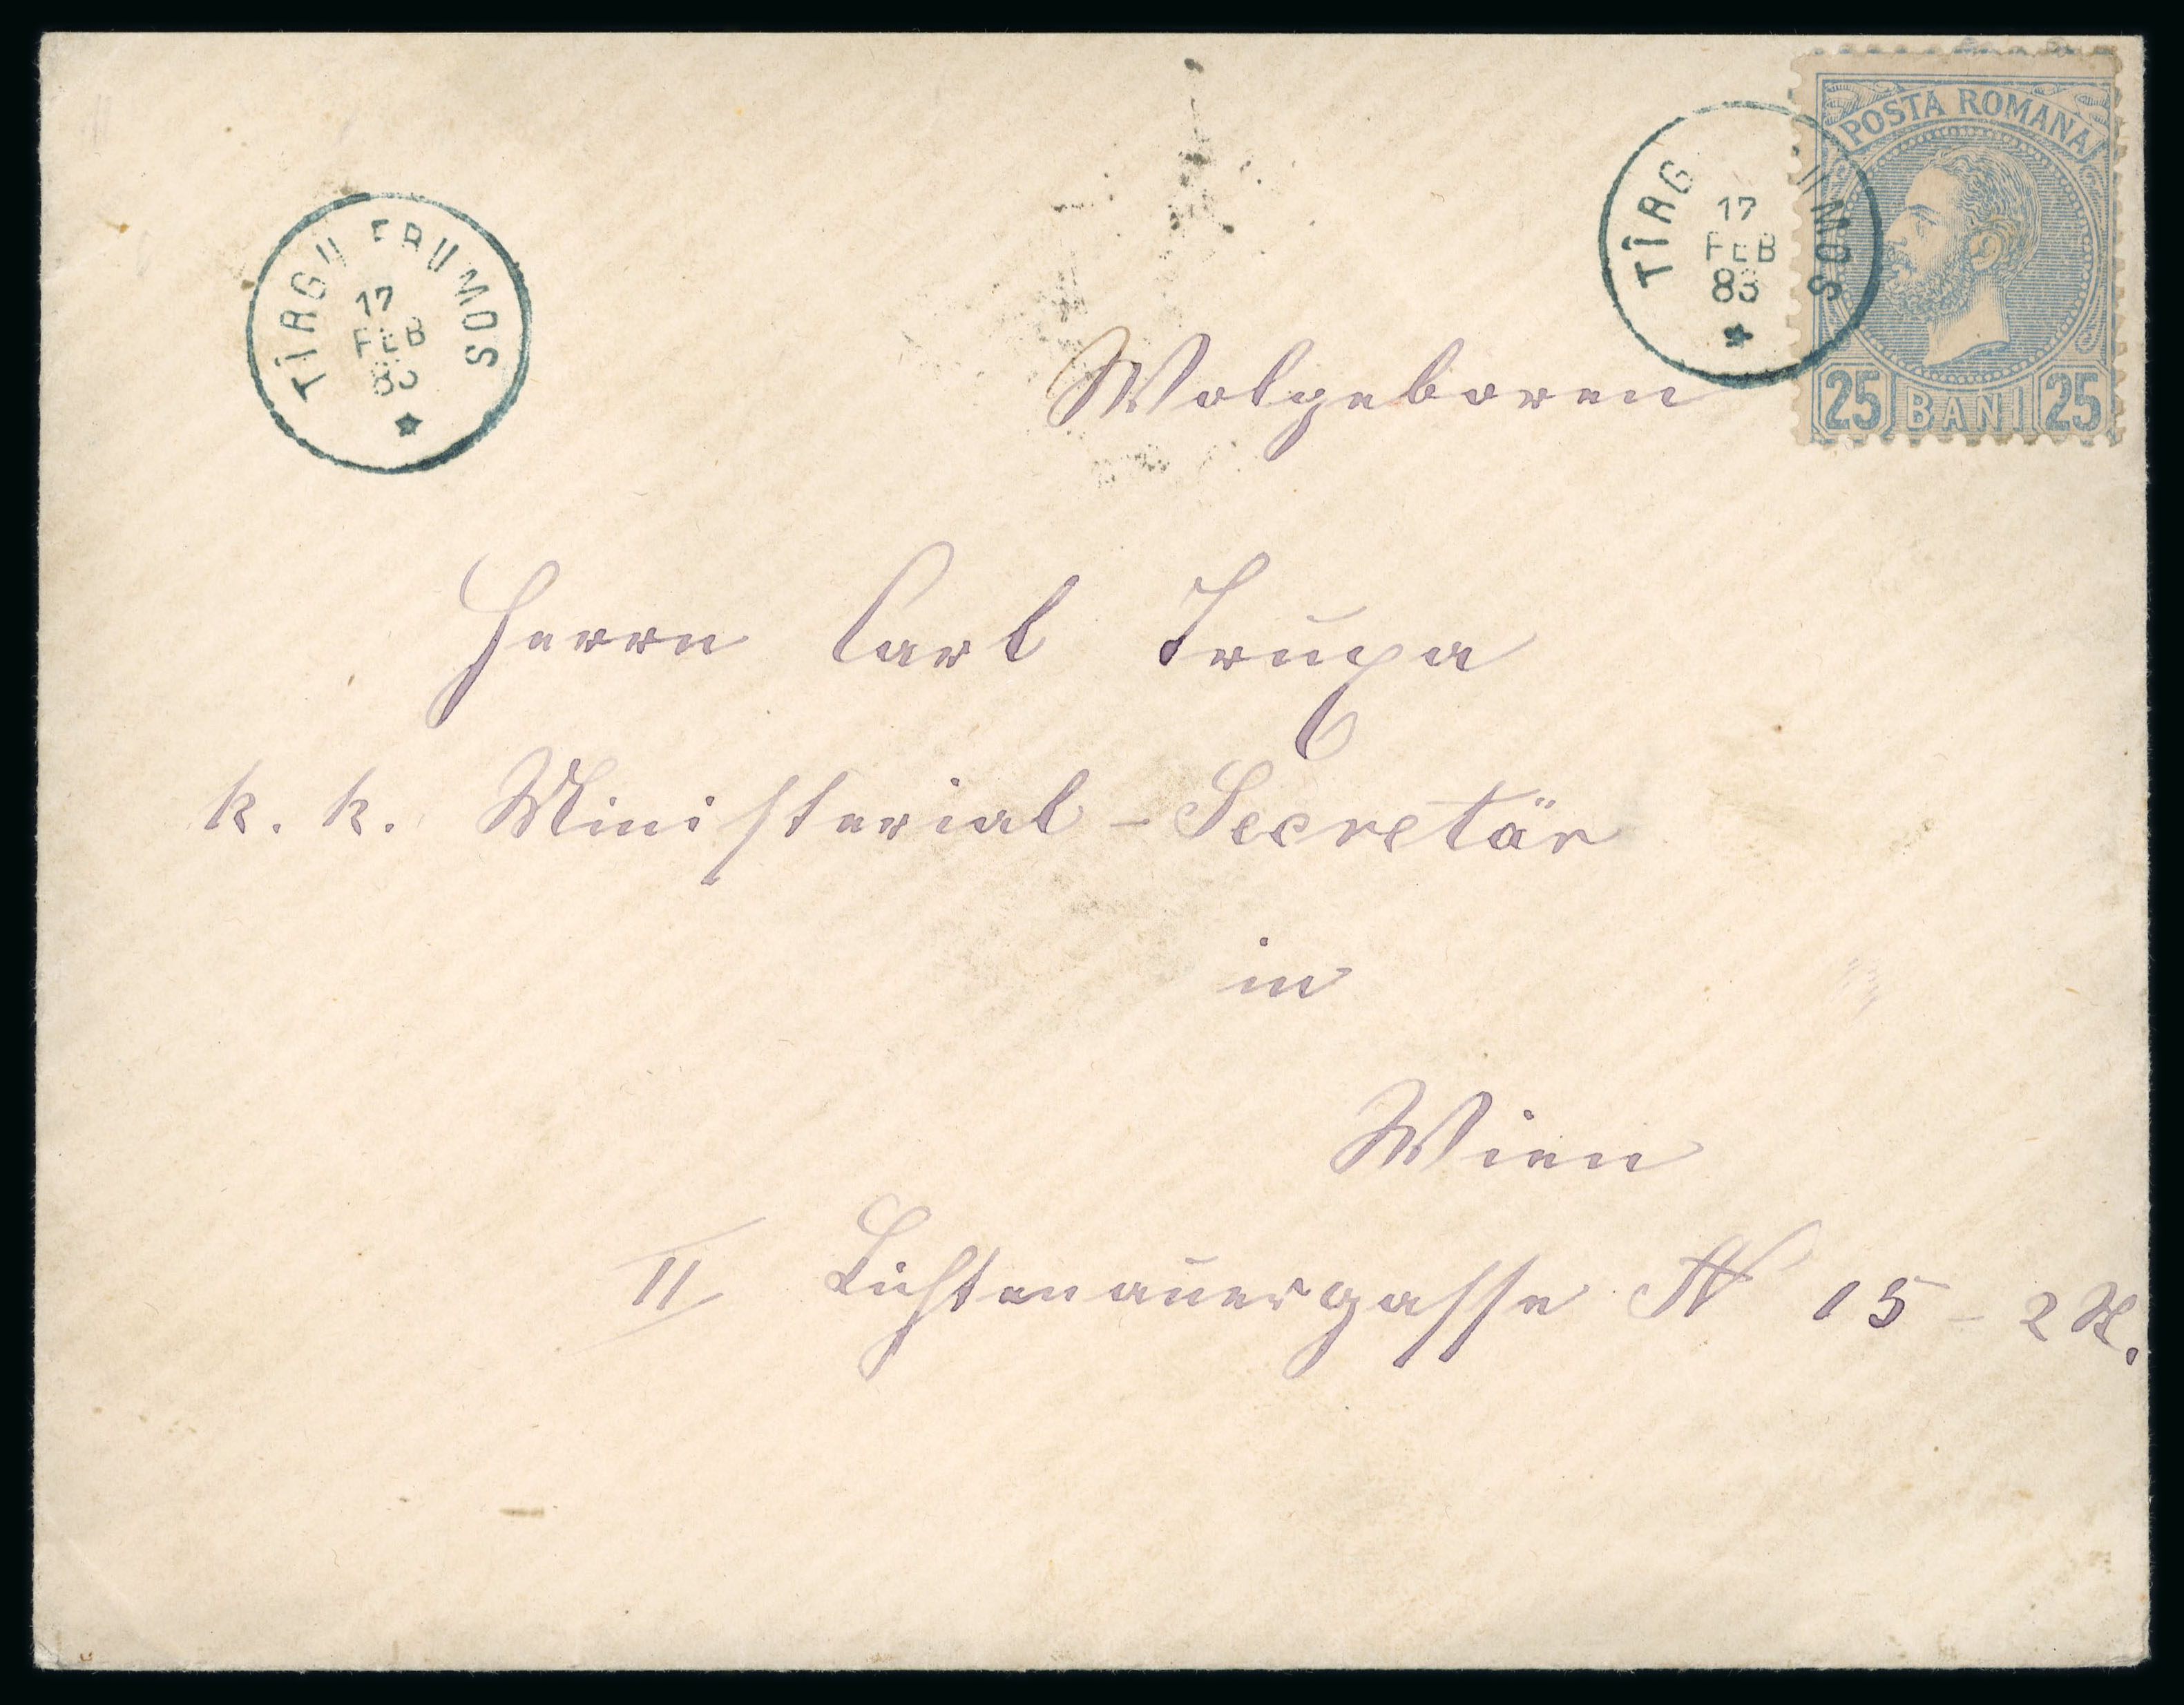 TÎRGU FRUMOS
17
FEB
83
TÎRG UMOS
17
FEB
83
POSTA ROMANA
25 BANI 25
Wolgeboren
Herrn Carl Trupa
k. k. Ministerial-Secretär
in
Wien
II Lichtenauergasse N 15 - 2